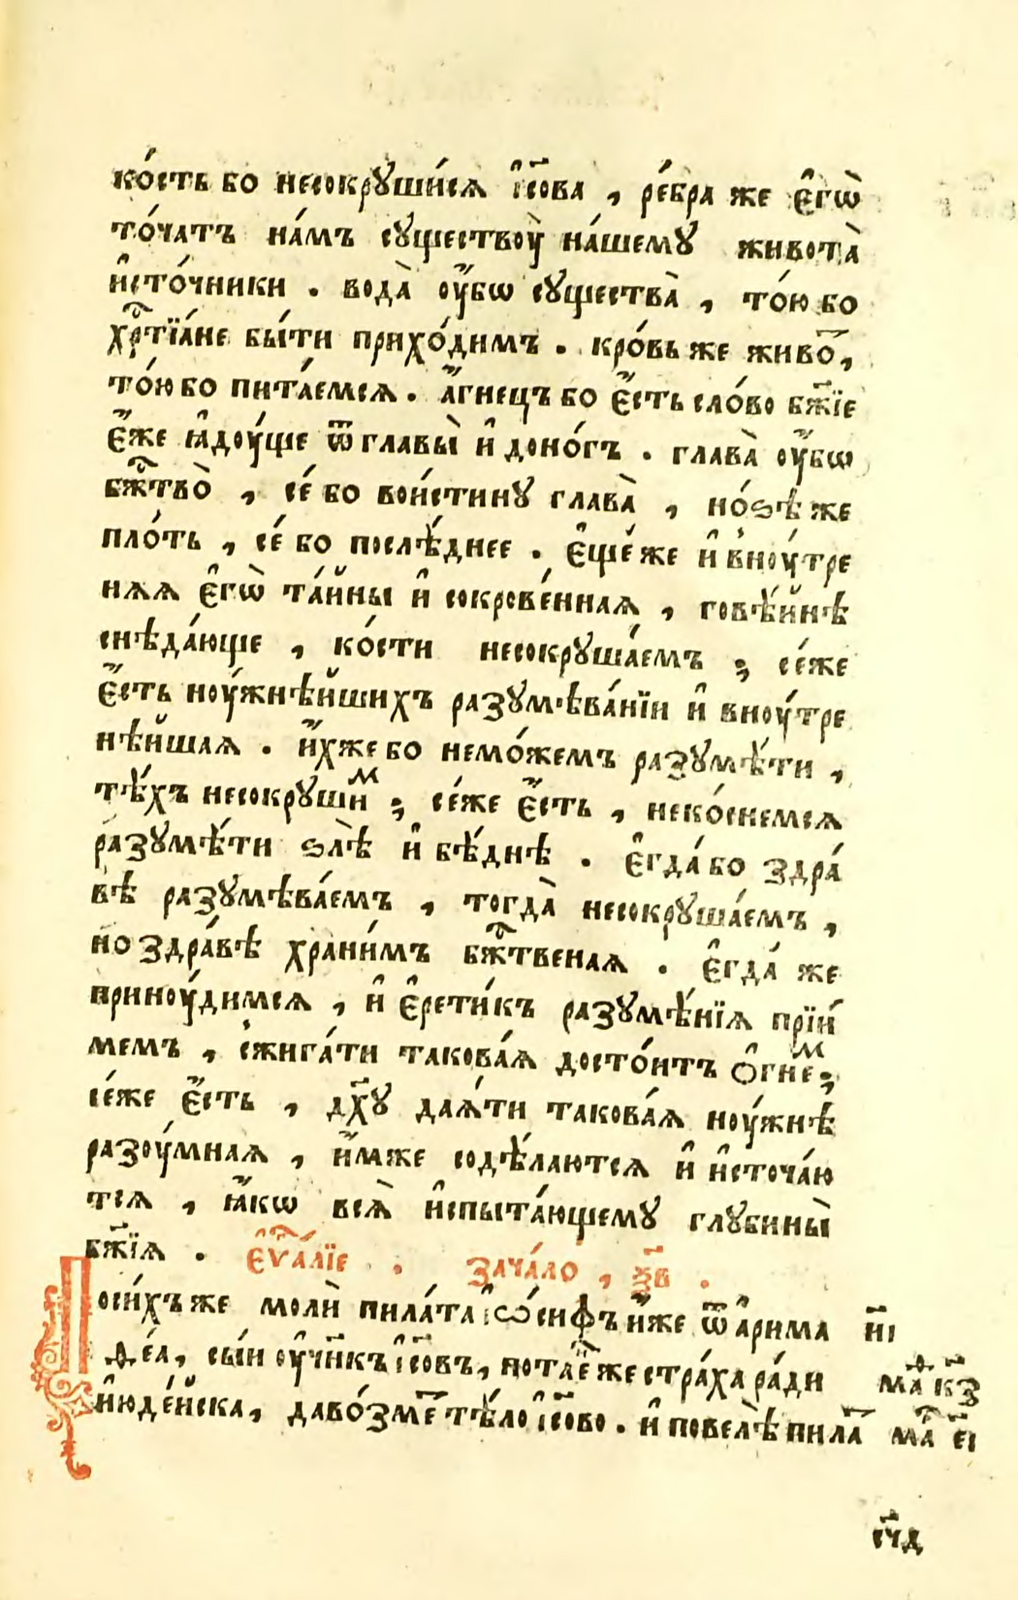 ко́сть бо несокрꙋши́сѧ і҆со҃ва , ре́бра же є҆гѡ̀
то́чатъ на́мъ сꙋществоу̀ на́шемꙋ живота̀
и҆сто́чники . вода̀ оу҆́бѡ сꙋщества̀ , то́ю бо
хрⷭ҇тїа́не бы́ти прихо́димъ . кро́вь же живо҃ ,
то́ю бо пита́емсѧ . а҆́гнецъ бо є҆́сть сло́во бж҃їе
є҆́же ꙗ҆доу́ще ѿ главы̀ и҆ доно́гъ . глава̀ оу҆́бѡ
бжⷭ҇тво̀ , се́ бо вои́стинꙋ глава̀ , но́ѕѣ же
пло́ть , се́ бо послѣ́днее . є҆ще́ же и҆ вноу́тре
нѧѧ є҆гѡ̀ та́йны и҆ сокрове́ннаѧ , говѣ́йнѣ
снѣда́юще , ко́сти несокрꙋша́емъ ; се́же
є҆́сть ноу́жнѣйшихъ разꙋмѣва́нїи и҆ вноу́тре
нѣ́йшаѧ . и҆́хже бо немо́жемъ разꙋмѣ́ти ,
тѣ́хъ несокрꙋши́ⷨ ; се́же є҆́сть , неко́снемсѧ
разꙋмѣ́ти ѕлѣ̀ и҆ бѣ́днѣ . є҆гда́ бо здра́
вѣ разꙋмѣва́емъ , тогда̀ несокрꙋша́емъ ,
но здра́вѣ храни́мъ бжⷭ҇твенаѧ . є҆гда́ же
приноу́димсѧ , и҆ є҆рети́къ разꙋмѣ́нїѧ прїи́
мемъ , сжига́ти такова́ѧ досто́итъ ѻ҆гнеⷨ ;
се́же є҆́сть , дх҃ꙋ даѧ́ти такова́ѧ ноу́жнѣ
разоу́мнаѧ , и҆́маже содѣ́лаютсѧ и҆ и҆сточа́ю
тсѧ , ꙗ҆́кѡ всѧ̀ и҆спыта́ющемꙋ глꙋбины̀
бж҃їѧ . є҆ѵⷢ҇а́лїе . зача́ло , ѯ҃в .
Посих́ъже молѝ пила́та і҆ѡ́сифъ и҆́же ѿ а҆рима и҃і
ѳе́а , сы́и оу҆чн҃къ і҆со҃въ , потае́ же стра́ха ра́ди маⷴ҇ к҃з
і҆юде́йска , даво́зме҃ тѣ́ло і҆со҃во . и҆ повелѣ̀ пила҃ маⷬ҇ е҃і
сч҃д